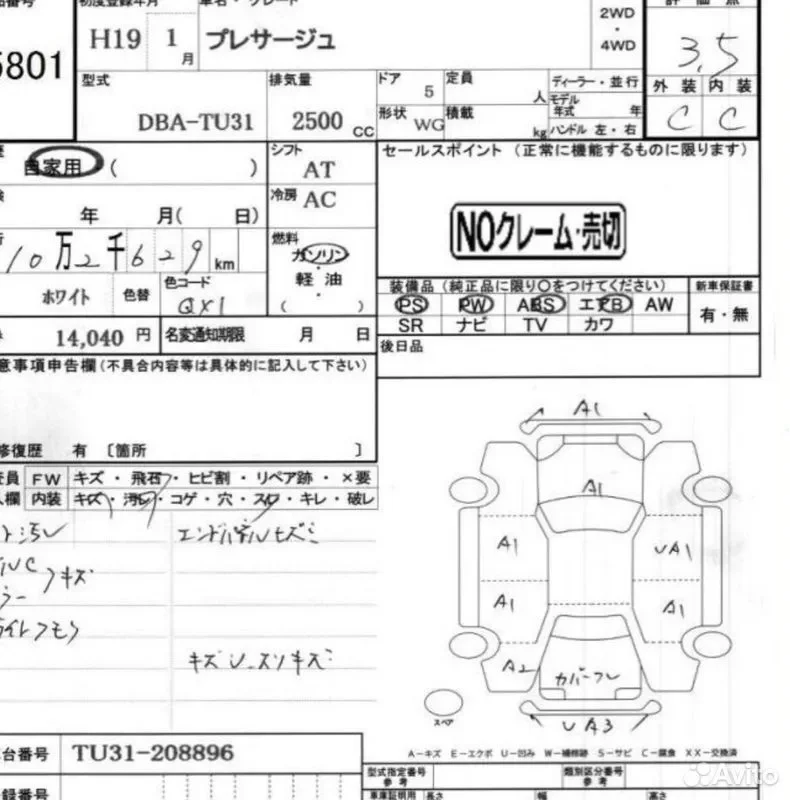 初度登録年月 車名・グレード 評価点
5801 H19 1月 プレサージュ 2WD・4WD 3.5
型式 DBA-TU31 排気量 2500cc ドア 5 定員 人 ディーラー・並行 外装 内装
形状 WG 積載 kg モデル年式 年 ハンドル 左・右 C C
自家用( ) シフト AT セールスポイント (正常に機能するものに限ります)
年 月( 日) 冷房 AC
NOクレーム・売切
10万2千629km 燃料 ガソリン・軽油・( )
ホワイト 色替 色コード QX1
装備品(純正品に限り○をつけてください) 新車保証書
PS PW ABS エアB AW 有・無
SR ナビ TV カワ
14,040円 名変通知期限 月 日
後日品
意事項申告欄(不具合内容等は具体的に記入して下さい)
修復歴 有 〔箇所 〕
FW キズ・飛石・ヒビ割・リペア跡・×要
内装 キズ・汚レ・コゲ・穴・スレ・キレ・破レ
エンドパネルキズミ
キズ
キズ U スリキズ
A1
A1
A1 UA1
A1 A1
A2 カバーフレ
UA3
スペア
A-キズ E-エクボ U-凹み W-補修跡 S-サビ C-腐食 XX-交換済
台番号 TU31-208896
録番号
型式指定番号 参考 類別区分番号 参考
車庫証明用 長さ 幅 高さ
Avito